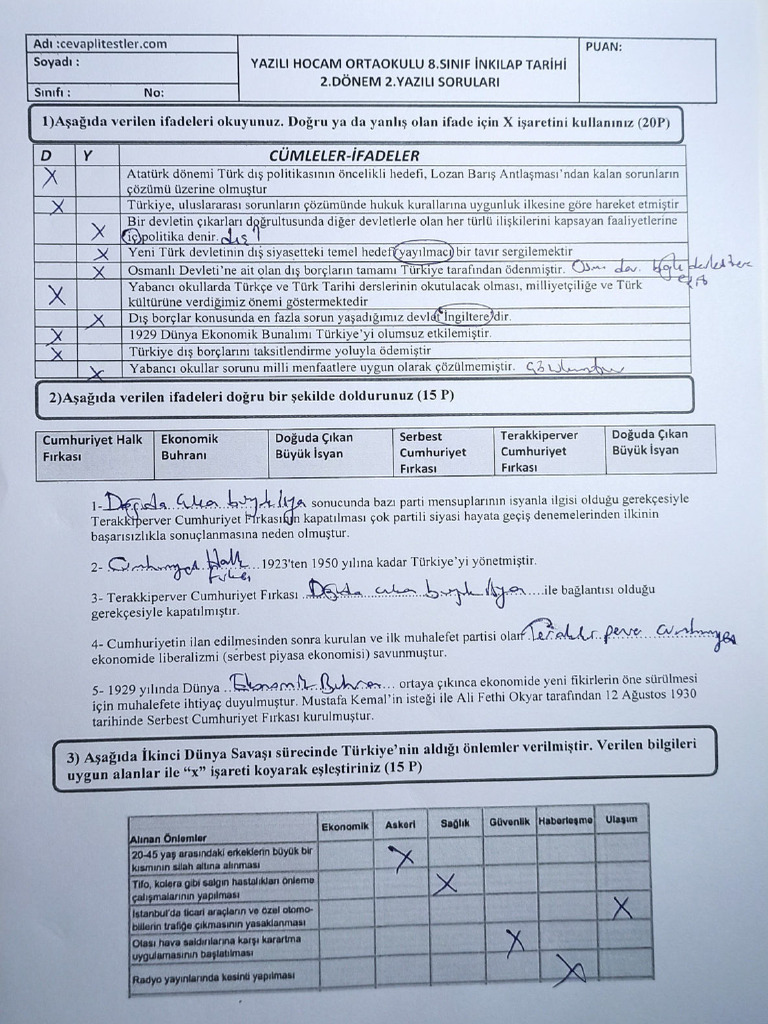 Adı :cevaplitestler.com
Soyadı :
Sınıfı : No:
YAZILI HOCAM ORTAOKULU 8.SINIF İNKILAP TARİHİ
2.DÖNEM 2.YAZILI SORULARI
PUAN:
1)Aşağıda verilen ifadeleri okuyunuz. Doğru ya da yanlış olan ifade için X işaretini kullanınız (20P)
D Y CÜMLELER-İFADELER
X Atatürk dönemi Türk dış politikasının öncelikli hedefi, Lozan Barış Antlaşması'ndan kalan sorunların
çözümü üzerine olmuştur
X Türkiye, uluslararası sorunların çözümünde hukuk kurallarına uygunluk ilkesine göre hareket etmiştir
Bir devletin çıkarları doğrultusunda diğer devletlerle olan her türlü ilişkilerini kapsayan faaliyetlerine
X iç politika denir. dış
X Yeni Türk devletinin dış siyasetteki temel hedefi yayılmacı bir tavır sergilemektir
X Osmanlı Devleti'ne ait olan dış borçların tamamı Türkiye tarafından ödenmiştir.
X Yabancı okullarda Türkçe ve Türk Tarihi derslerinin okutulacak olması, milliyetçiliğe ve Türk
kültürüne verdiğimiz önemi göstermektedir
X Dış borçlar konusunda en fazla sorun yaşadığımız devlet İngiltere'dir.
X 1929 Dünya Ekonomik Bunalımı Türkiye'yi olumsuz etkilemiştir.
X Türkiye dış borçlarını taksitlendirme yoluyla ödemiştir
X Yabancı okullar sorunu milli menfaatlere uygun olarak çözülmemiştir.
2)Aşağıda verilen ifadeleri doğru bir şekilde doldurunuz (15 P)
Cumhuriyet Halk Fırkası
Ekonomik Buhranı
Doğuda Çıkan Büyük İsyan
Serbest Cumhuriyet Fırkası
Terakkiperver Cumhuriyet Fırkası
Doğuda Çıkan Büyük İsyan
1- sonucunda bazı parti mensuplarının isyanla ilgisi olduğu gerekçesiyle
Terakkiperver Cumhuriyet Fırkasının kapatılması çok partili siyasi hayata geçiş denemelerinden ilkinin
başarısızlıkla sonuçlanmasına neden olmuştur.
2- Halk 1923'ten 1950 yılına kadar Türkiye'yi yönetmiştir.
3- Terakkiperver Cumhuriyet Fırkası ile bağlantısı olduğu
gerekçesiyle kapatılmıştır.
4- Cumhuriyetin ilan edilmesinden sonra kurulan ve ilk muhalefet partisi olan
ekonomide liberalizmi (serbest piyasa ekonomisi) savunmuştur.
5- 1929 yılında Dünya Ekonomik Buhran ortaya çıkınca ekonomide yeni fikirlerin öne sürülmesi
için muhalefete ihtiyaç duyulmuştur. Mustafa Kemal'in isteği ile Ali Fethi Okyar tarafından 12 Ağustos 1930
tarihinde Serbest Cumhuriyet Fırkası kurulmuştur.
3) Aşağıda İkinci Dünya Savaşı sürecinde Türkiye'nin aldığı önlemler verilmiştir. Verilen bilgileri
uygun alanlar ile "x" işareti koyarak eşleştiriniz (15 P)
Alınan Önlemler Ekonomik Askeri Sağlık Güvenlik Haberleşme Ulaşım
20-45 yaş arasındaki erkeklerin büyük bir
kısmının silah altına alınması X
Tifo, kolera gibi salgın hastalıkları önleme
çalışmalarının yapılması X
İstanbul'da ticari araçların ve özel otomo-
billerin trafiğe çıkmasının yasaklanması X
Olası hava saldırılarına karşı karartma
uygulamasının başlatılması X
Radyo yayınlarında kesinti yapılması X